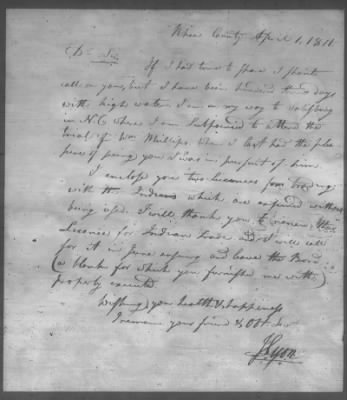 Rhea County April 1, 1811
Dr Sir
If I had time to spare I should
call on you, but I have been hindered three days
with high water I am on my way to Salisbury
in N C where I am Subpoened to attend the
trial of Wm Phillips. When I last had the plea
sure of seeing you I was in pursuit of him
I enclose you two licences for trading
with the Indians which are expired without
being used. I will thank you to renew
License for Indian trade and I will call
for it in June ensuing and leave the Bond
(a blank for which you furnished me with)
properly executed
Wishing you health & happiness
I remain your friend & Obt
J Lyon